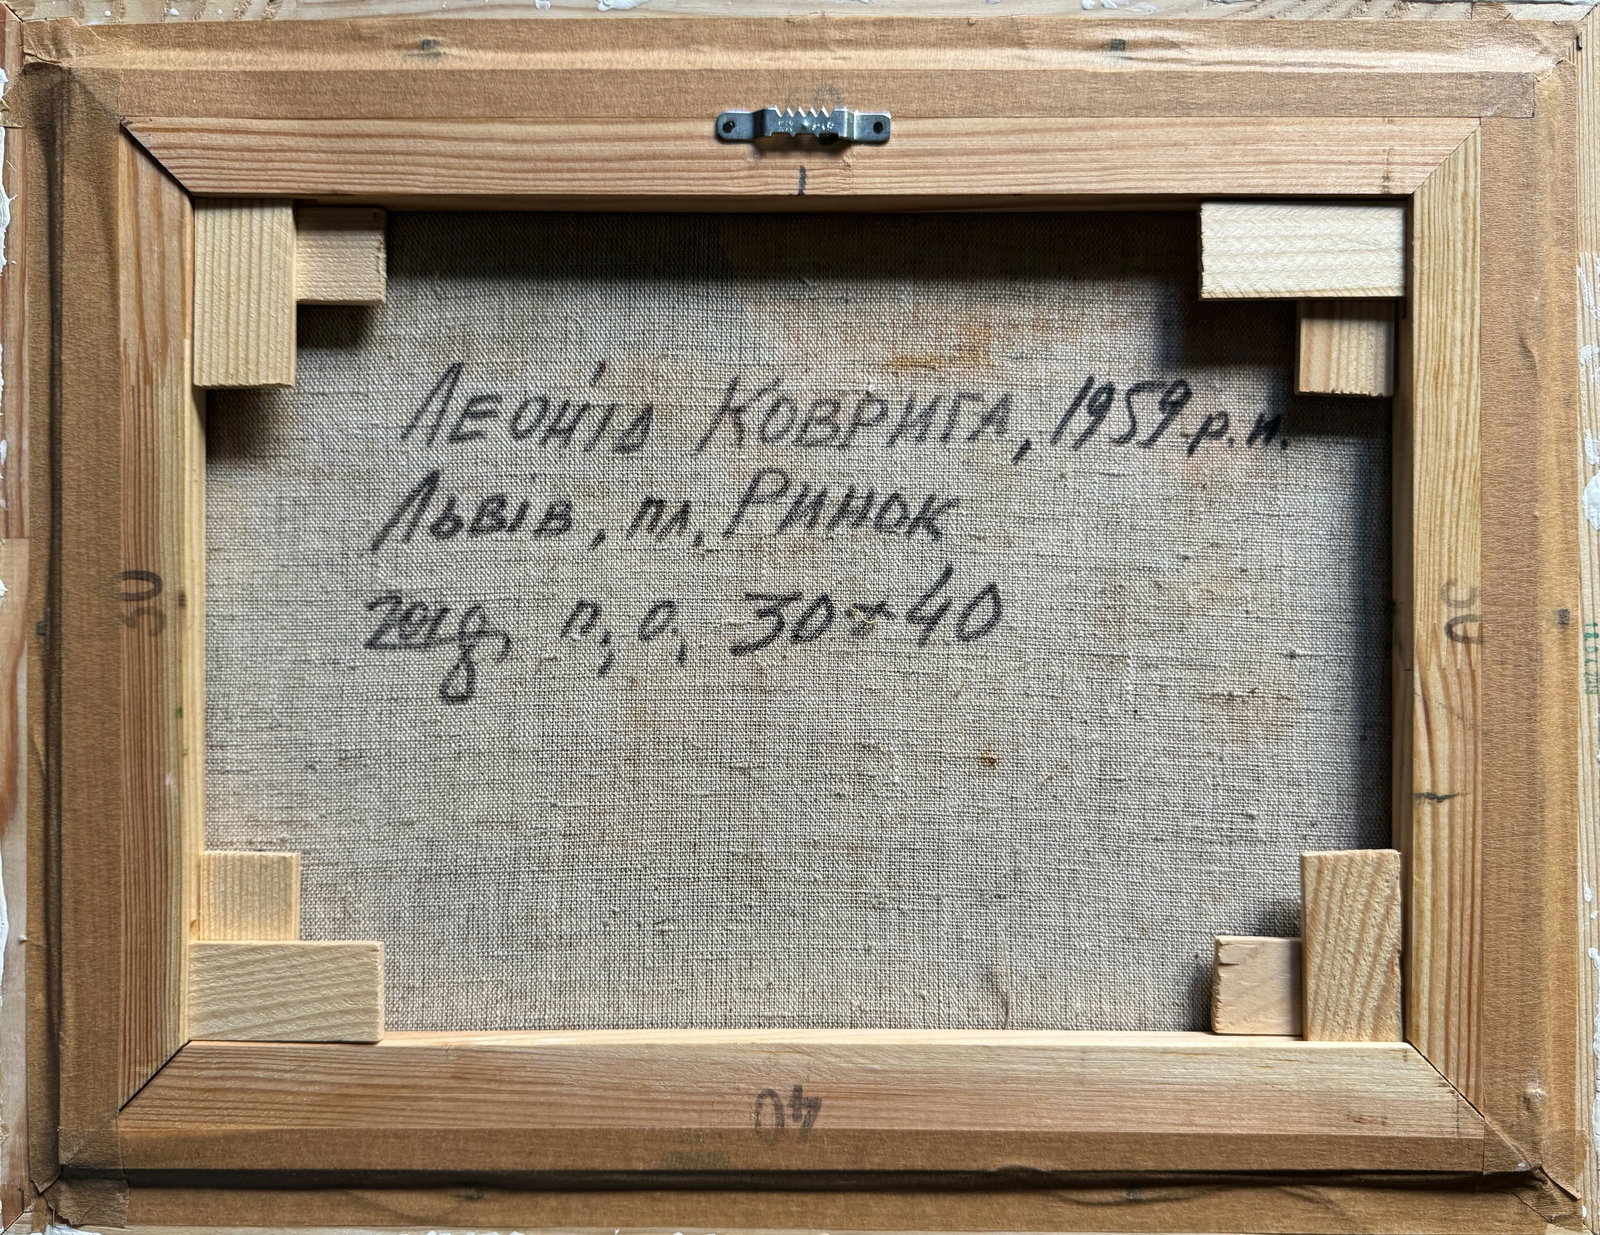 Леонід Коврига, 1959 р.н.
Львів, пл. Ринок
п, о, 30×40
30
30
40